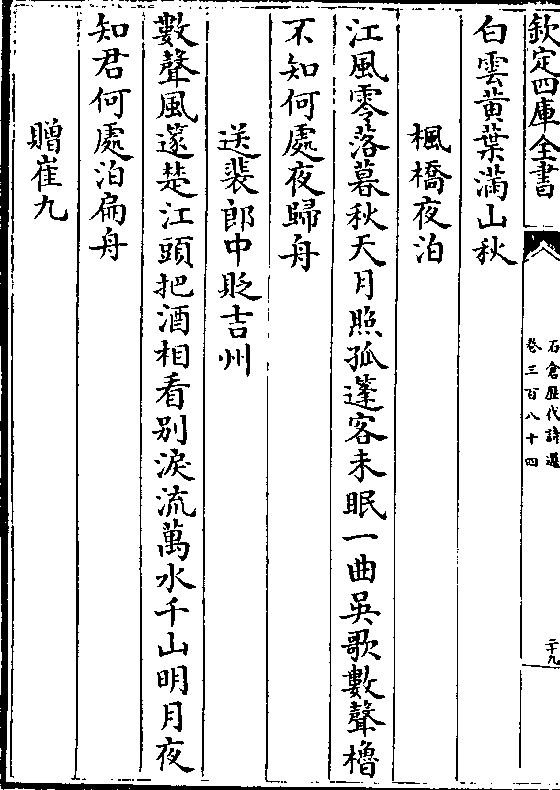 欽定四庫全書
石倉歴代詩選
卷三百八十四
二十九
白雲黄葉滿山秋
楓橋夜泊
江風零落暮秋天月照孤蓬客未眠一曲吳歌數聲櫓
不知何處夜歸舟
送裴郎中貶吉州
數聲風邃楚江頭把酒相看别淚流萬水千山明月夜
知君何處泊扁舟
贈崔九